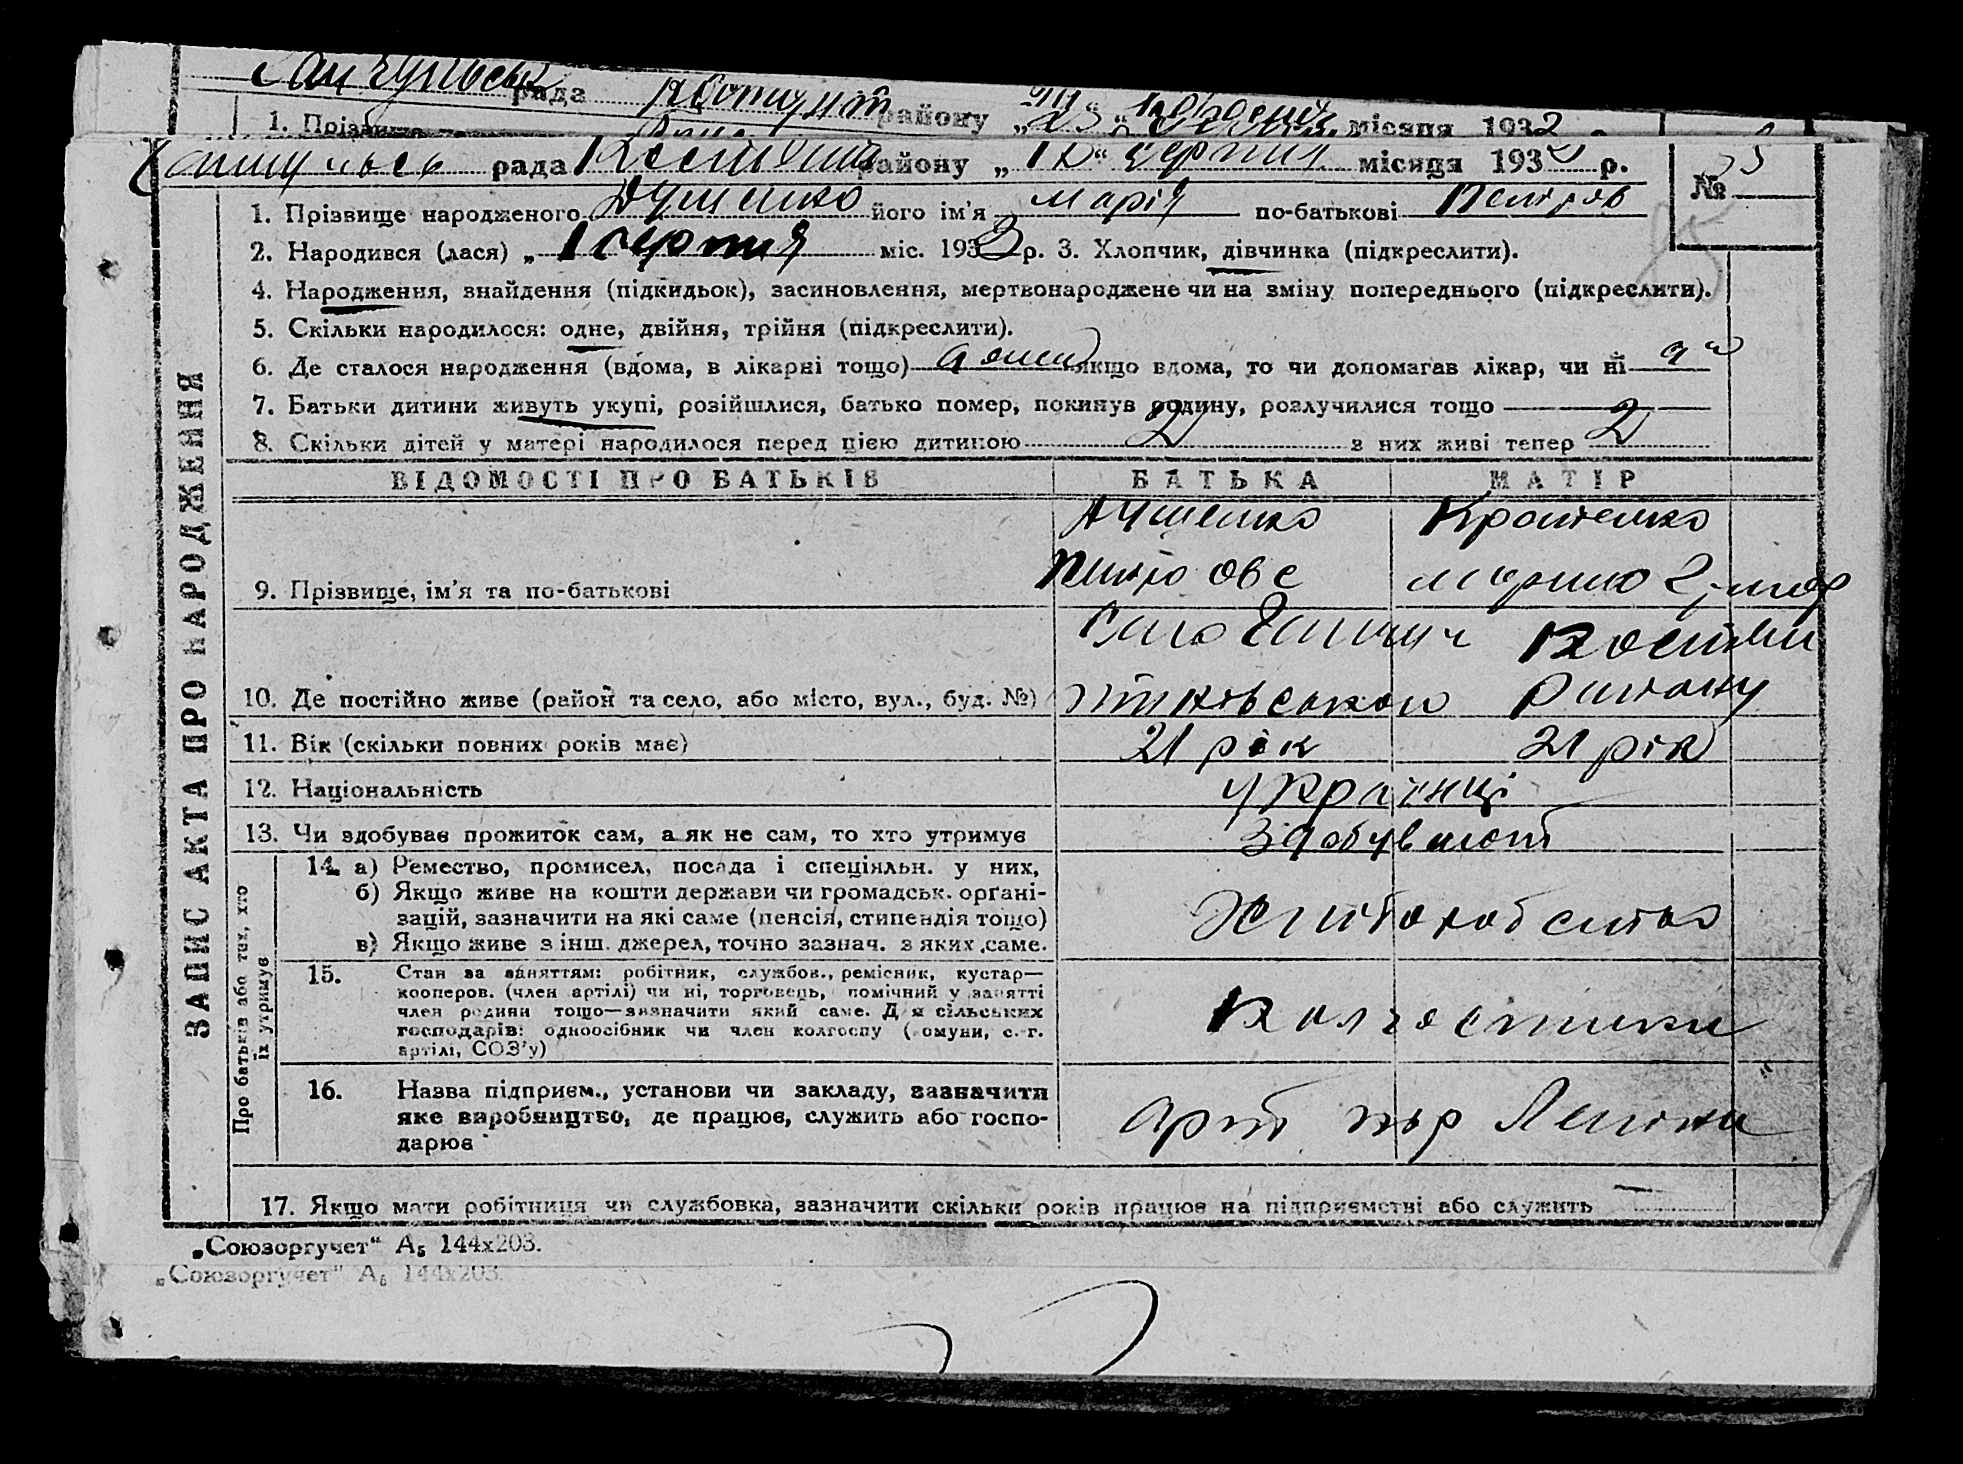 рада району „23“ місяця 1932
1. Прізвище
рада району „12“ серпня місяця 193 р. № 33
1. Прізвище народженого Душенко його ім'я Марія по-батькові Петров
2. Народився (лася) „ 1 серпня міс. 193 р. 3. Хлопчик, дівчинка (підкреслити).
4. Народження, знайдення (підкидьок), засиновлення, мертвонароджене чи на зміну попереднього (підкреслити).
5. Скільки народилося: одне, двійня, трійня (підкреслити).
6. Де сталося народження (вдома, в лікарні тощо) якщо вдома, то чи допомагав лікар, чи ні
7. Батьки дитини живуть укупі, розійшлися, батько помер, покинув родину, розлучилися тощо
8. Скільки дітей у матері народилося перед цією дитиною 2 з них живі тепер 2
ЗАПИС АКТА ПРО НАРОДЖЕННЯ
ВІДОМОСТІ ПРО БАТЬКІВ БАТЬКА МАТІР
Душенко
9. Прізвище, ім'я та по-батькові
10. Де постійно живе (район та село, або місто, вул., буд. №)
11. Вік (скільки повних років має) 21 рік 21 рік
12. Національність українці
13. Чи здобував прожиток сам, а як не сам, то хто утримує здобувають
Про батьків або тих, хто їх утримує
14. а) Ремество, промисел, посада і спеціяльн. у них,
б) Якщо живе на кошти держави чи громадськ. органі-
зацій, зазначити на які саме (пенсія, стипендія тощо)
в) Якщо живе з інш. джерел, точно зазнач. з яких саме.
15. Стан за заняттям: робітник, службов., ремісник, кустар—
кооперов. (член артілі) чи ні, торговець, помічний у занятті
член родини тощо—зазначити який саме. Для сільських
господарів: одноосібник чи член колгоспу (комуни, с.-г.
артілі, СОЗ'у)
Колгоспники
16. Назва підприєм., установи чи закладу, зазначити
яке виробництво, де працює, служить або госпо-
дарює
арт
17. Якщо мати робітниця чи службовка, зазначити скільки років працює на підприємстві або служить —
„Союзоргучет“ А₅ 144х203.
„Союзоргучет“ А₅ 144х203.